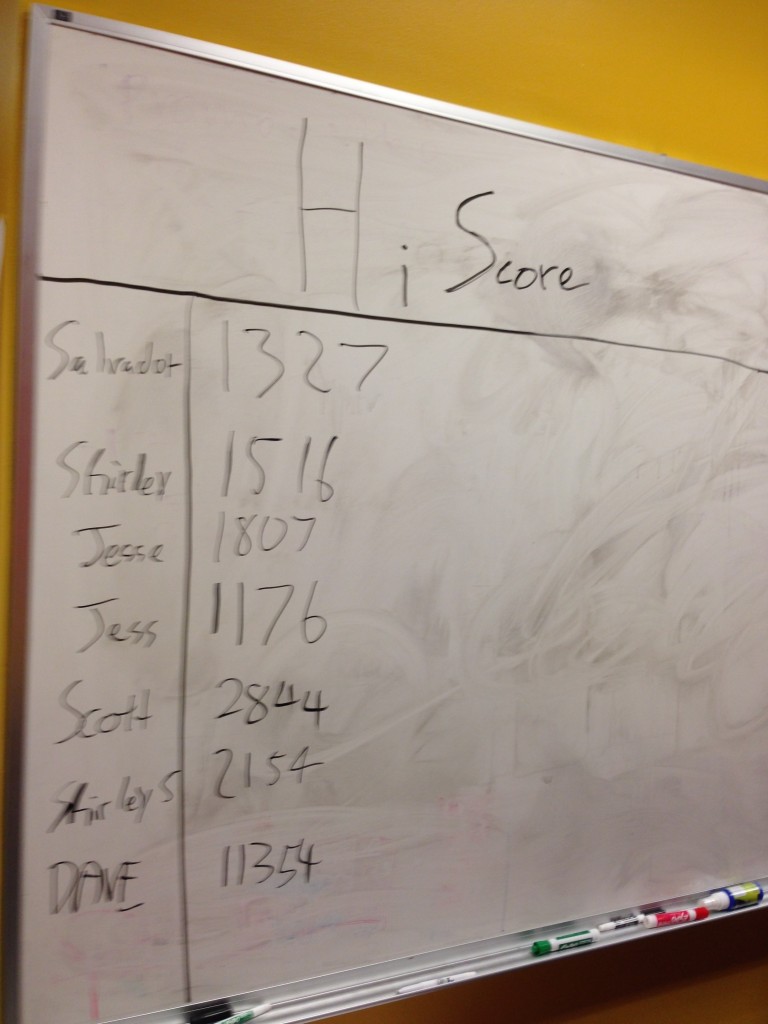 Hi Score
Salvador 1327
Shirley 1516
Jesse 1807
Jess 1176
Scott 2844
Shirley S 2154
DAVE 11354